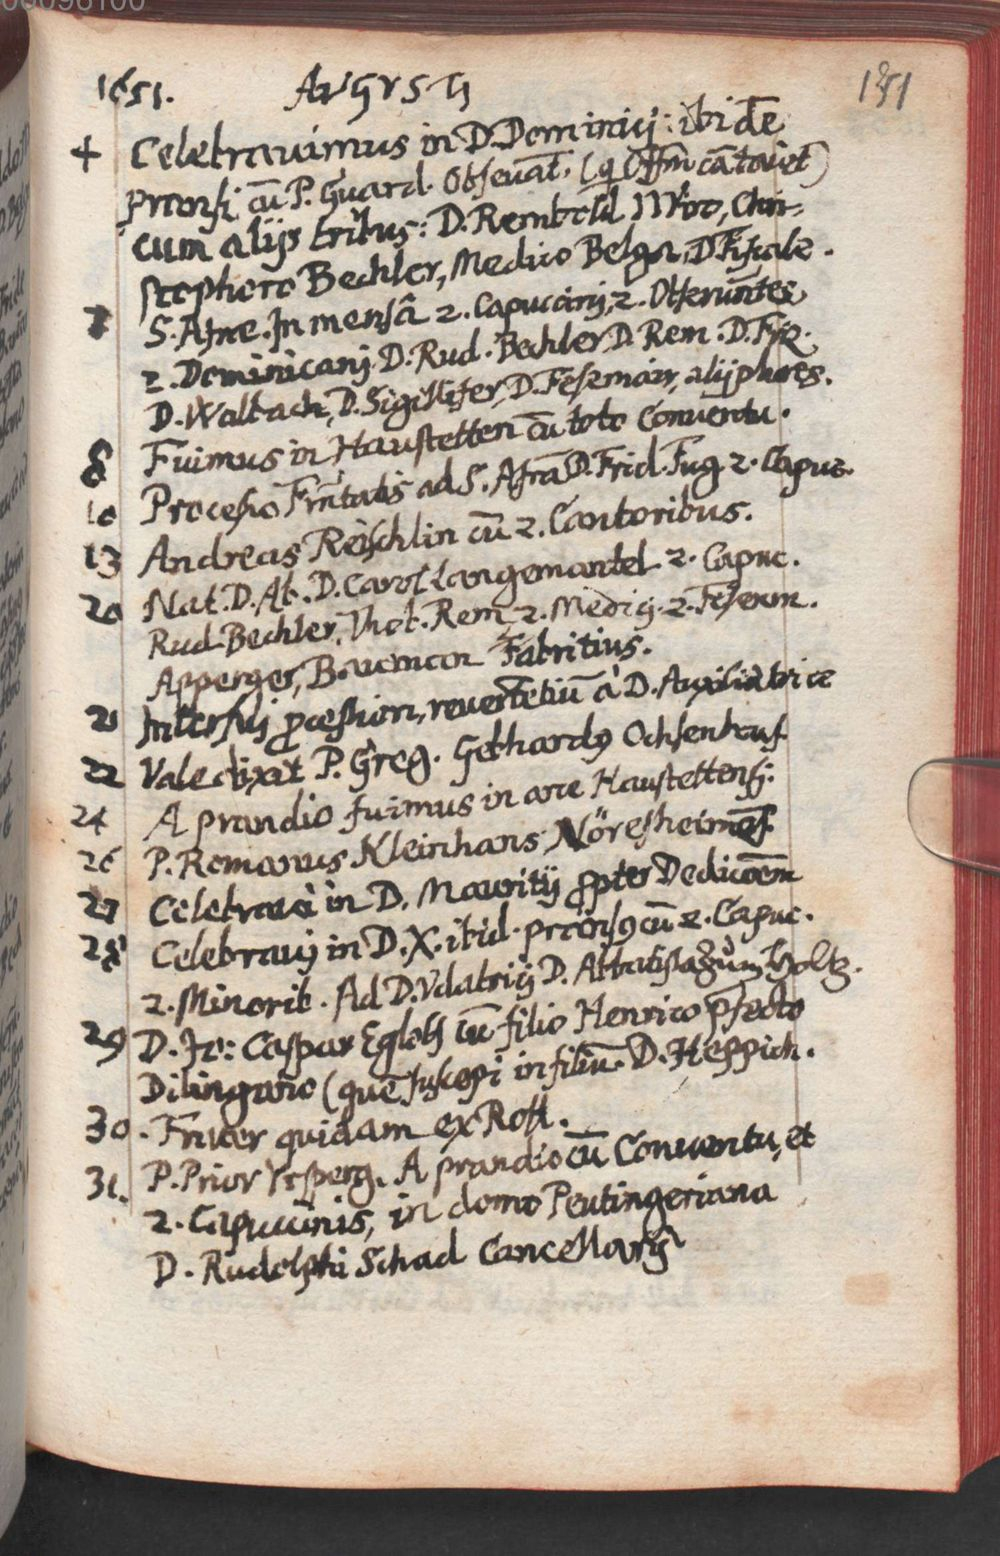 00096100
1651. AVGVSTI 151
4 Celebrauimus in D. Dominicj: ibidē
pransi cū P. Guard. Obseruāt. (q Offm cātauet)
cum alijs tribus: D. Rembold IIViro, Chri-
stophoro Bechler, Medico Belga, D. Fiscale.
7 S. Afrae. In mensâ 2. Capucinj, 2. Obseruātes
2. Dominicanj. D. Rud. Bechler D. Rem. D.
D. Walbach, D. Sigillifer, D. Fesenmair, alij plures.
8 Fuimus in Haustetten cū toto Conuentu.
10 Procesio Frītatis ad S. Afrā D. Frid. Fug. 2. Capuc.
13 Andreas Reischlin cū 2. Cantoribus.
20 Nat. D. Ab. D. Carol Langemantel 2. Capuc.
Rud. Bechler, Rem 2. Medicj. 2. Fesenm.
Apperger, Fabritius.
21 Interfuj pcession. reuertētiū à D. Auxiliatrice
22 Valedixit P. Greg. Gebhardq Ochsenhaus.
24 A prandio fuimus in arce Haustettensj.
26 P. Romanus Kleinhans Nöresheimēs.
27 Celebraui in D. Mauritij ppter Dedicōem
28 Celebrauj in D. X. ibid. pransq cū 2. Capuc.
2. Minorit. Ad D. Vdalricj D. Abbatissa Zum Holtz.
29 D. Jo: Caspar Eglofs cū filio Henrico pfecto
Dilingano (quē suscepi in filiū. D. Heppich.
30. Frater quidam ex Rott.
31. P. Prior Yrsperg. A prandio cū Conuentu, et
2. Capucinis, in domo Peutingeriana
D. Rudolphi Schad Cancellarij